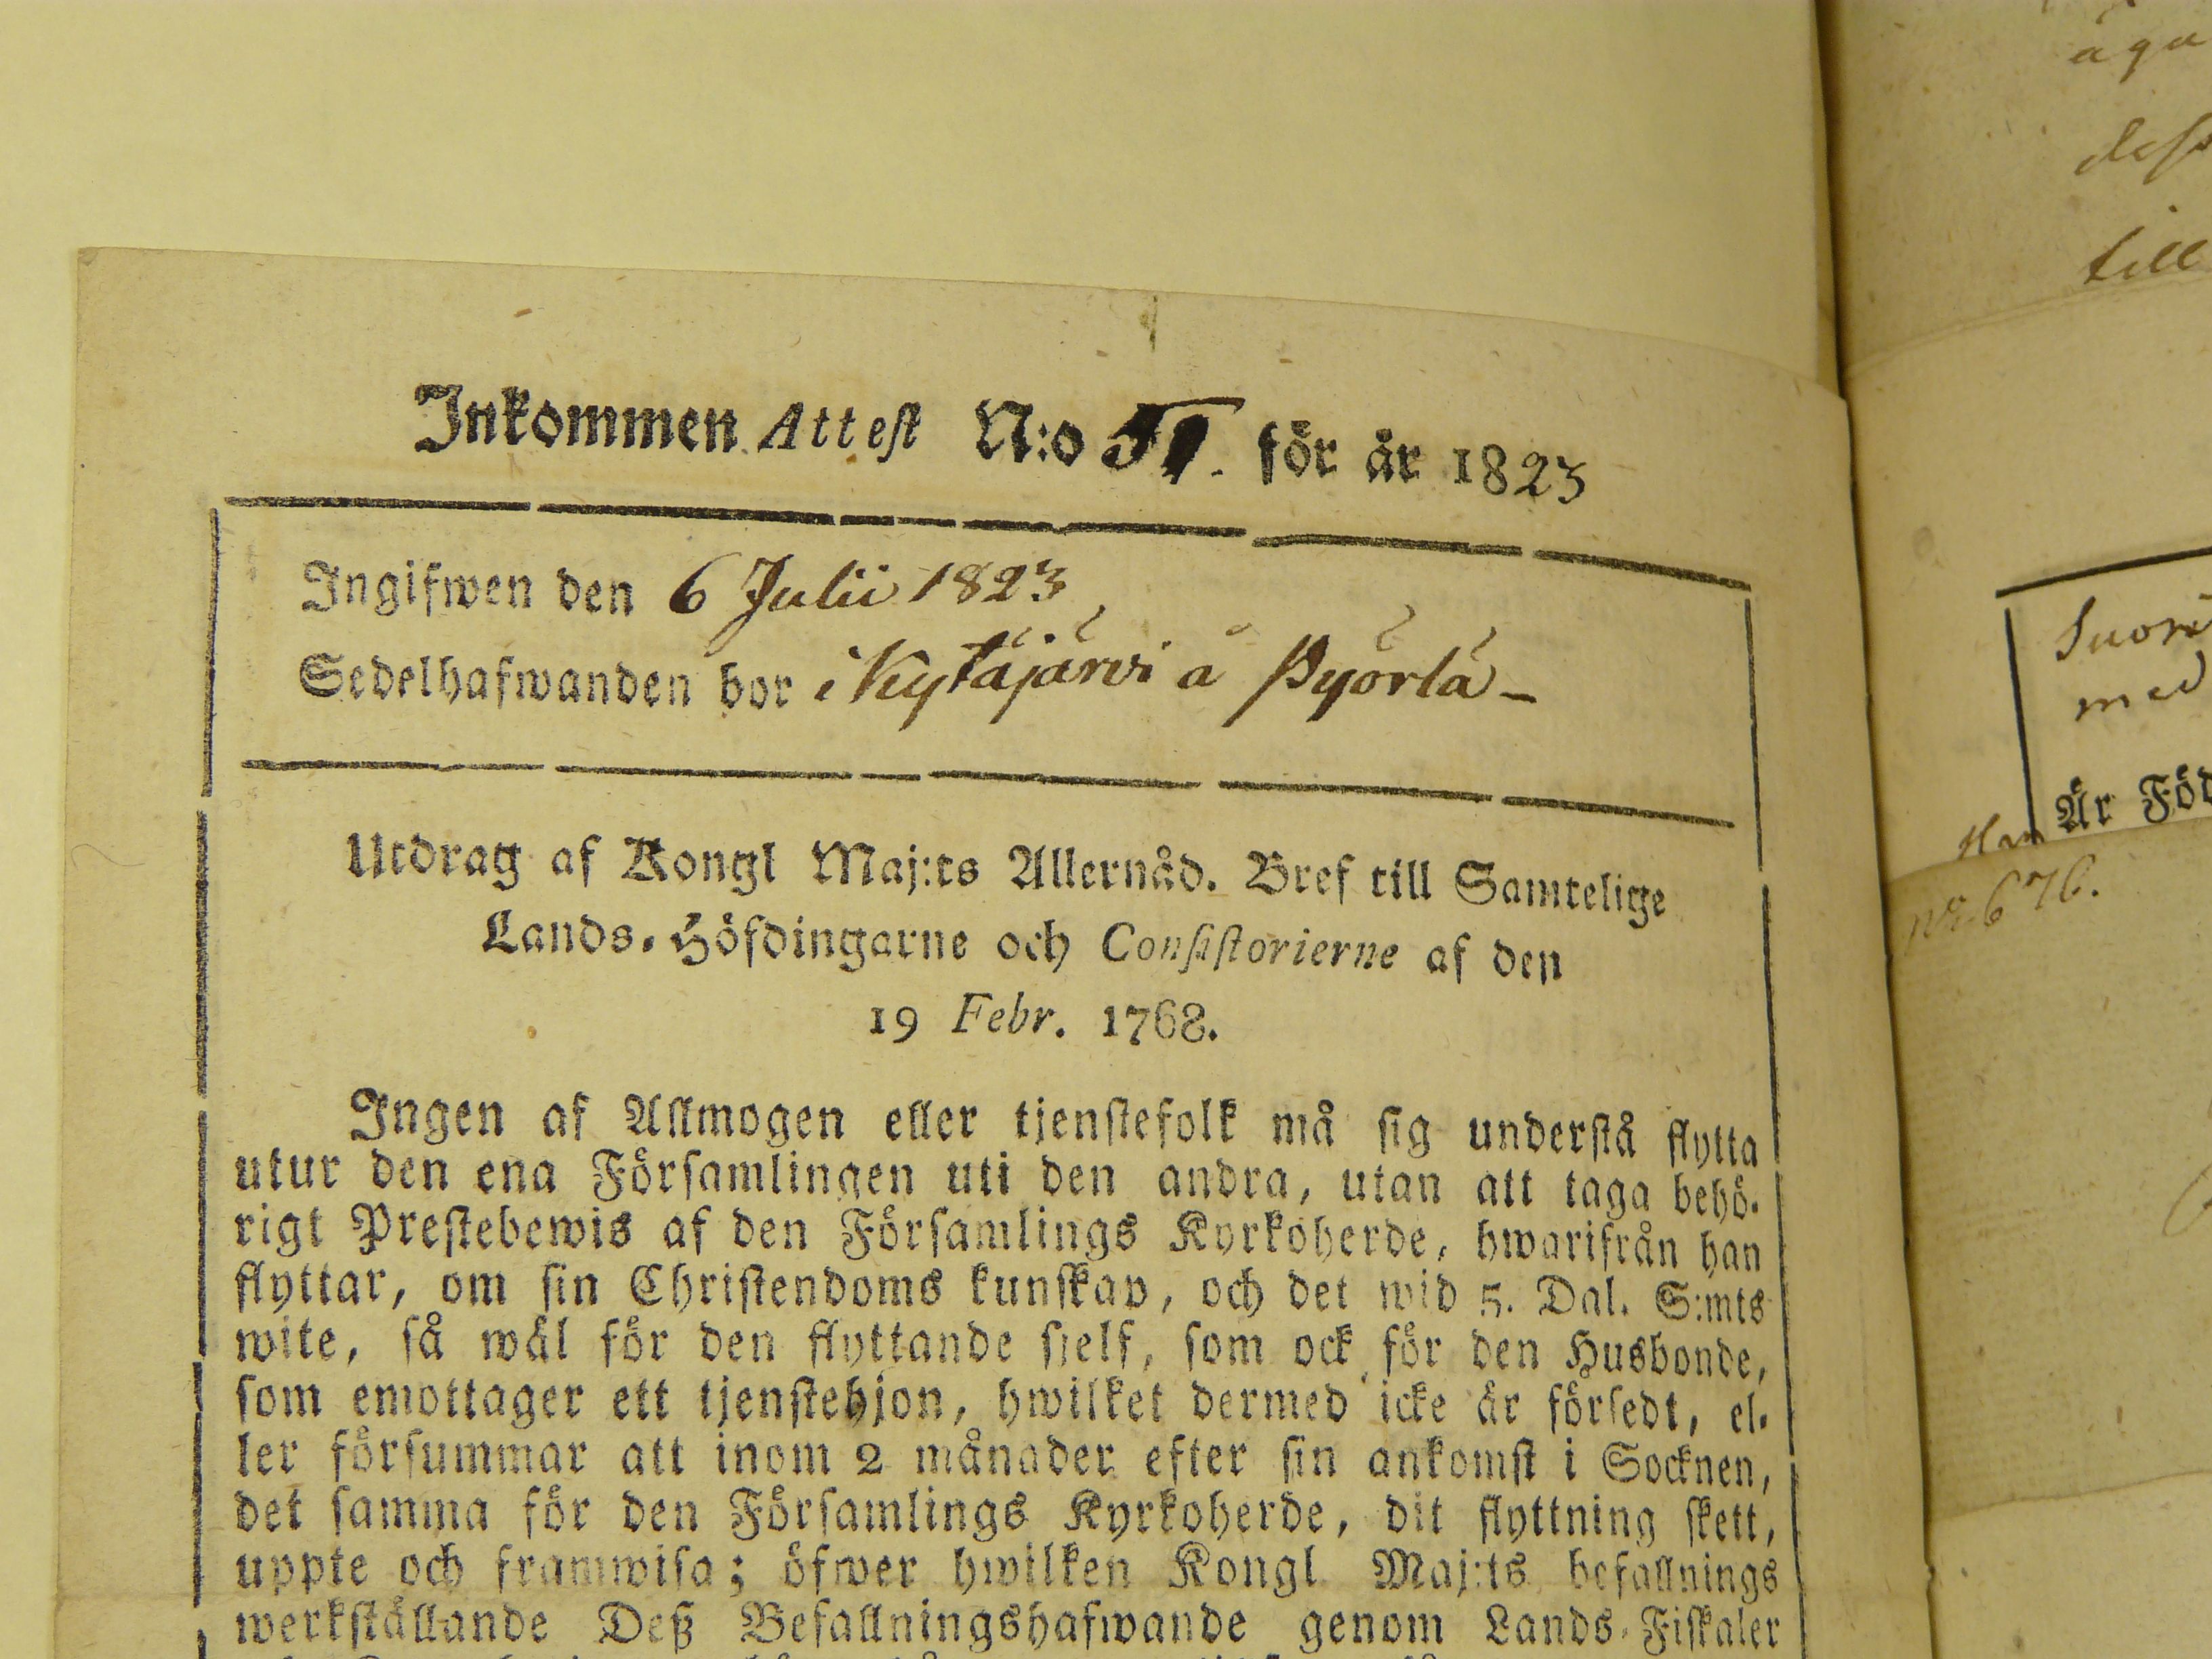 Inkommen Attest N:o för år 1823
Ingifwen den 6 Julii 1823
Sedelhafwanden bor i Kytäjärvi å Pyörlä –
Utdrag af Kongl Maj:ts Allernåd. Bref till Samtelige
Lands-Höfdingarne och Consistorierne af den
19 Febr. 1768.
Ingen af Allmogen eller tjenstefolk må sig understå flytta
utur den ena Församlingen uti den andra, utan att taga behö-
rigt Prestebewis af den Församlings Kyrkoherde, hwarifrån han
flyttar, om sin Christendoms kunskap, och det wid 5. Dal. S:mts
wite, så wäl för den flyttande sjelf, som ock för den Husbonde,
som emottager ett tjenstehjon, hwilket dermed icke är försedt, el-
ler försummar att inom 2 månader efter sin ankomst i Socknen,
det samma för den Församlings Kyrkoherde, dit flyttning skett,
uppte och framwisa; öfwer hwilken Kongl Maj:ts befallnings
werkställande Deß Befallningshafwande genom Lands-Fiskaler
äga
dess
till
med
Är Föd
No. 676.